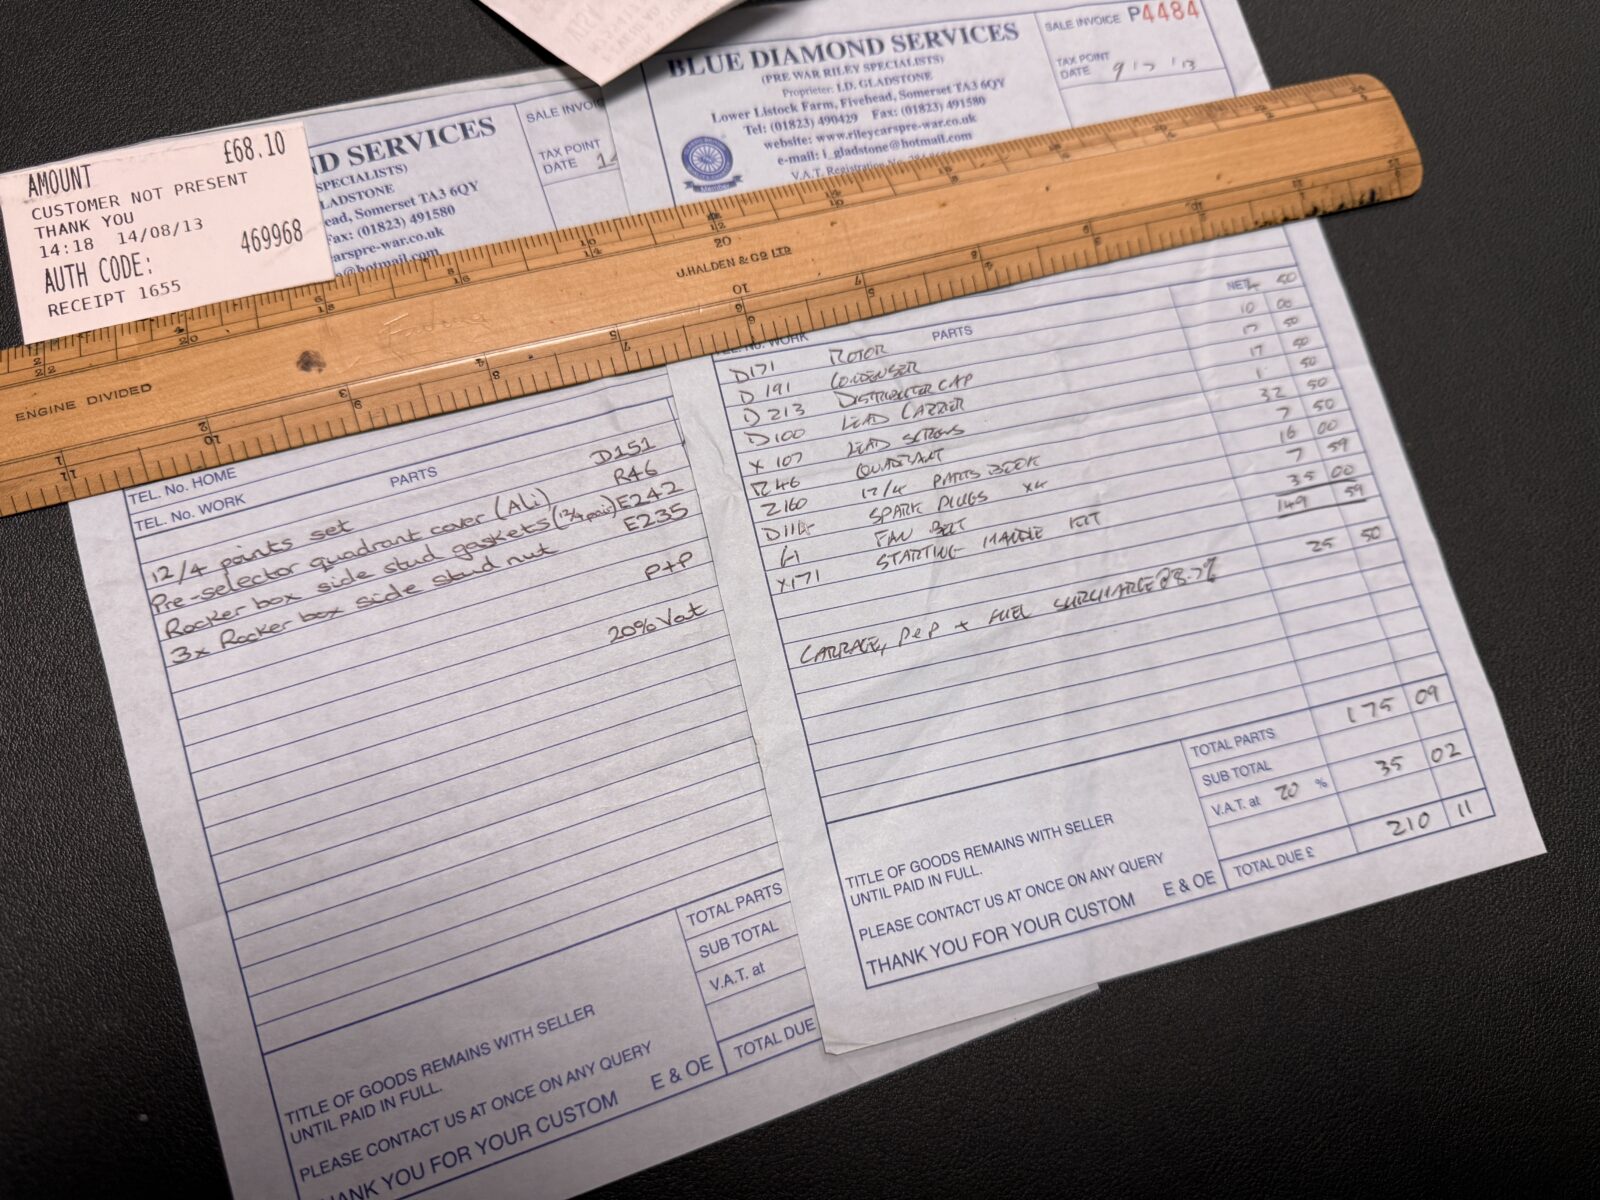 AMOUNT £68.10
CUSTOMER NOT PRESENT
THANK YOU
14:18 14/08/13
AUTH CODE: 469968
RECEIPT 1655
ND SERVICES
SPECIALISTS)
LADSTONE
ead, Somerset TA3 6QY
Fax: (01823) 491580
arspre-war.co.uk
@hotmail.com
SALE INVOI
TAX POINT
DATE
TEL. No. HOME
TEL. No. WORK PARTS
12/4 points set D151
Pre-selector quadrant cover (ALi) R46
Rocker box side stud gaskets (12/4 pair) E242
3x Rocker box side stud nut E235
P+P
20% Vat
TOTAL PARTS
SUB TOTAL
V.A.T. at
TOTAL DUE
TITLE OF GOODS REMAINS WITH SELLER
UNTIL PAID IN FULL.
PLEASE CONTACT US AT ONCE ON ANY QUERY
E & OE
THANK YOU FOR YOUR CUSTOM
BLUE DIAMOND SERVICES
(PRE WAR RILEY SPECIALISTS)
Proprietor: I.D. GLADSTONE
Lower Listock Farm, Fivehead, Somerset TA3 6QY
Tel: (01823) 490429 Fax: (01823) 491580
website: www.rileycarspre-war.co.uk
e-mail: i_gladstone@hotmail.com
V.A.T. Registration No.
SALE INVOICE P4484
TAX POINT
DATE
J.HALDEN & Co LTD
ENGINE DIVIDED
TEL. No. WORK PARTS NET
D171 ROTOR
D191 CONDENSER
D213 DISTRIBUTOR CAP
D100 LEAD CARRIER
X107 LEAD SCREWS
R46 QUADRANT
Z160 12/4 PARTS BOOK
SPARK PLUGS x4
FAN BELT
X171 STARTING HANDLE KIT
50
10 00
17 50
17 50
1 50
32 50
7 50
16 00
7 59
35 00
149 59
CARRAGE, P&P + FUEL SURCHARGE 25 50
TOTAL PARTS 175 09
SUB TOTAL
V.A.T. at 20 % 35 02
TOTAL DUE £ 210 11
TITLE OF GOODS REMAINS WITH SELLER
UNTIL PAID IN FULL.
PLEASE CONTACT US AT ONCE ON ANY QUERY
THANK YOU FOR YOUR CUSTOM E & OE